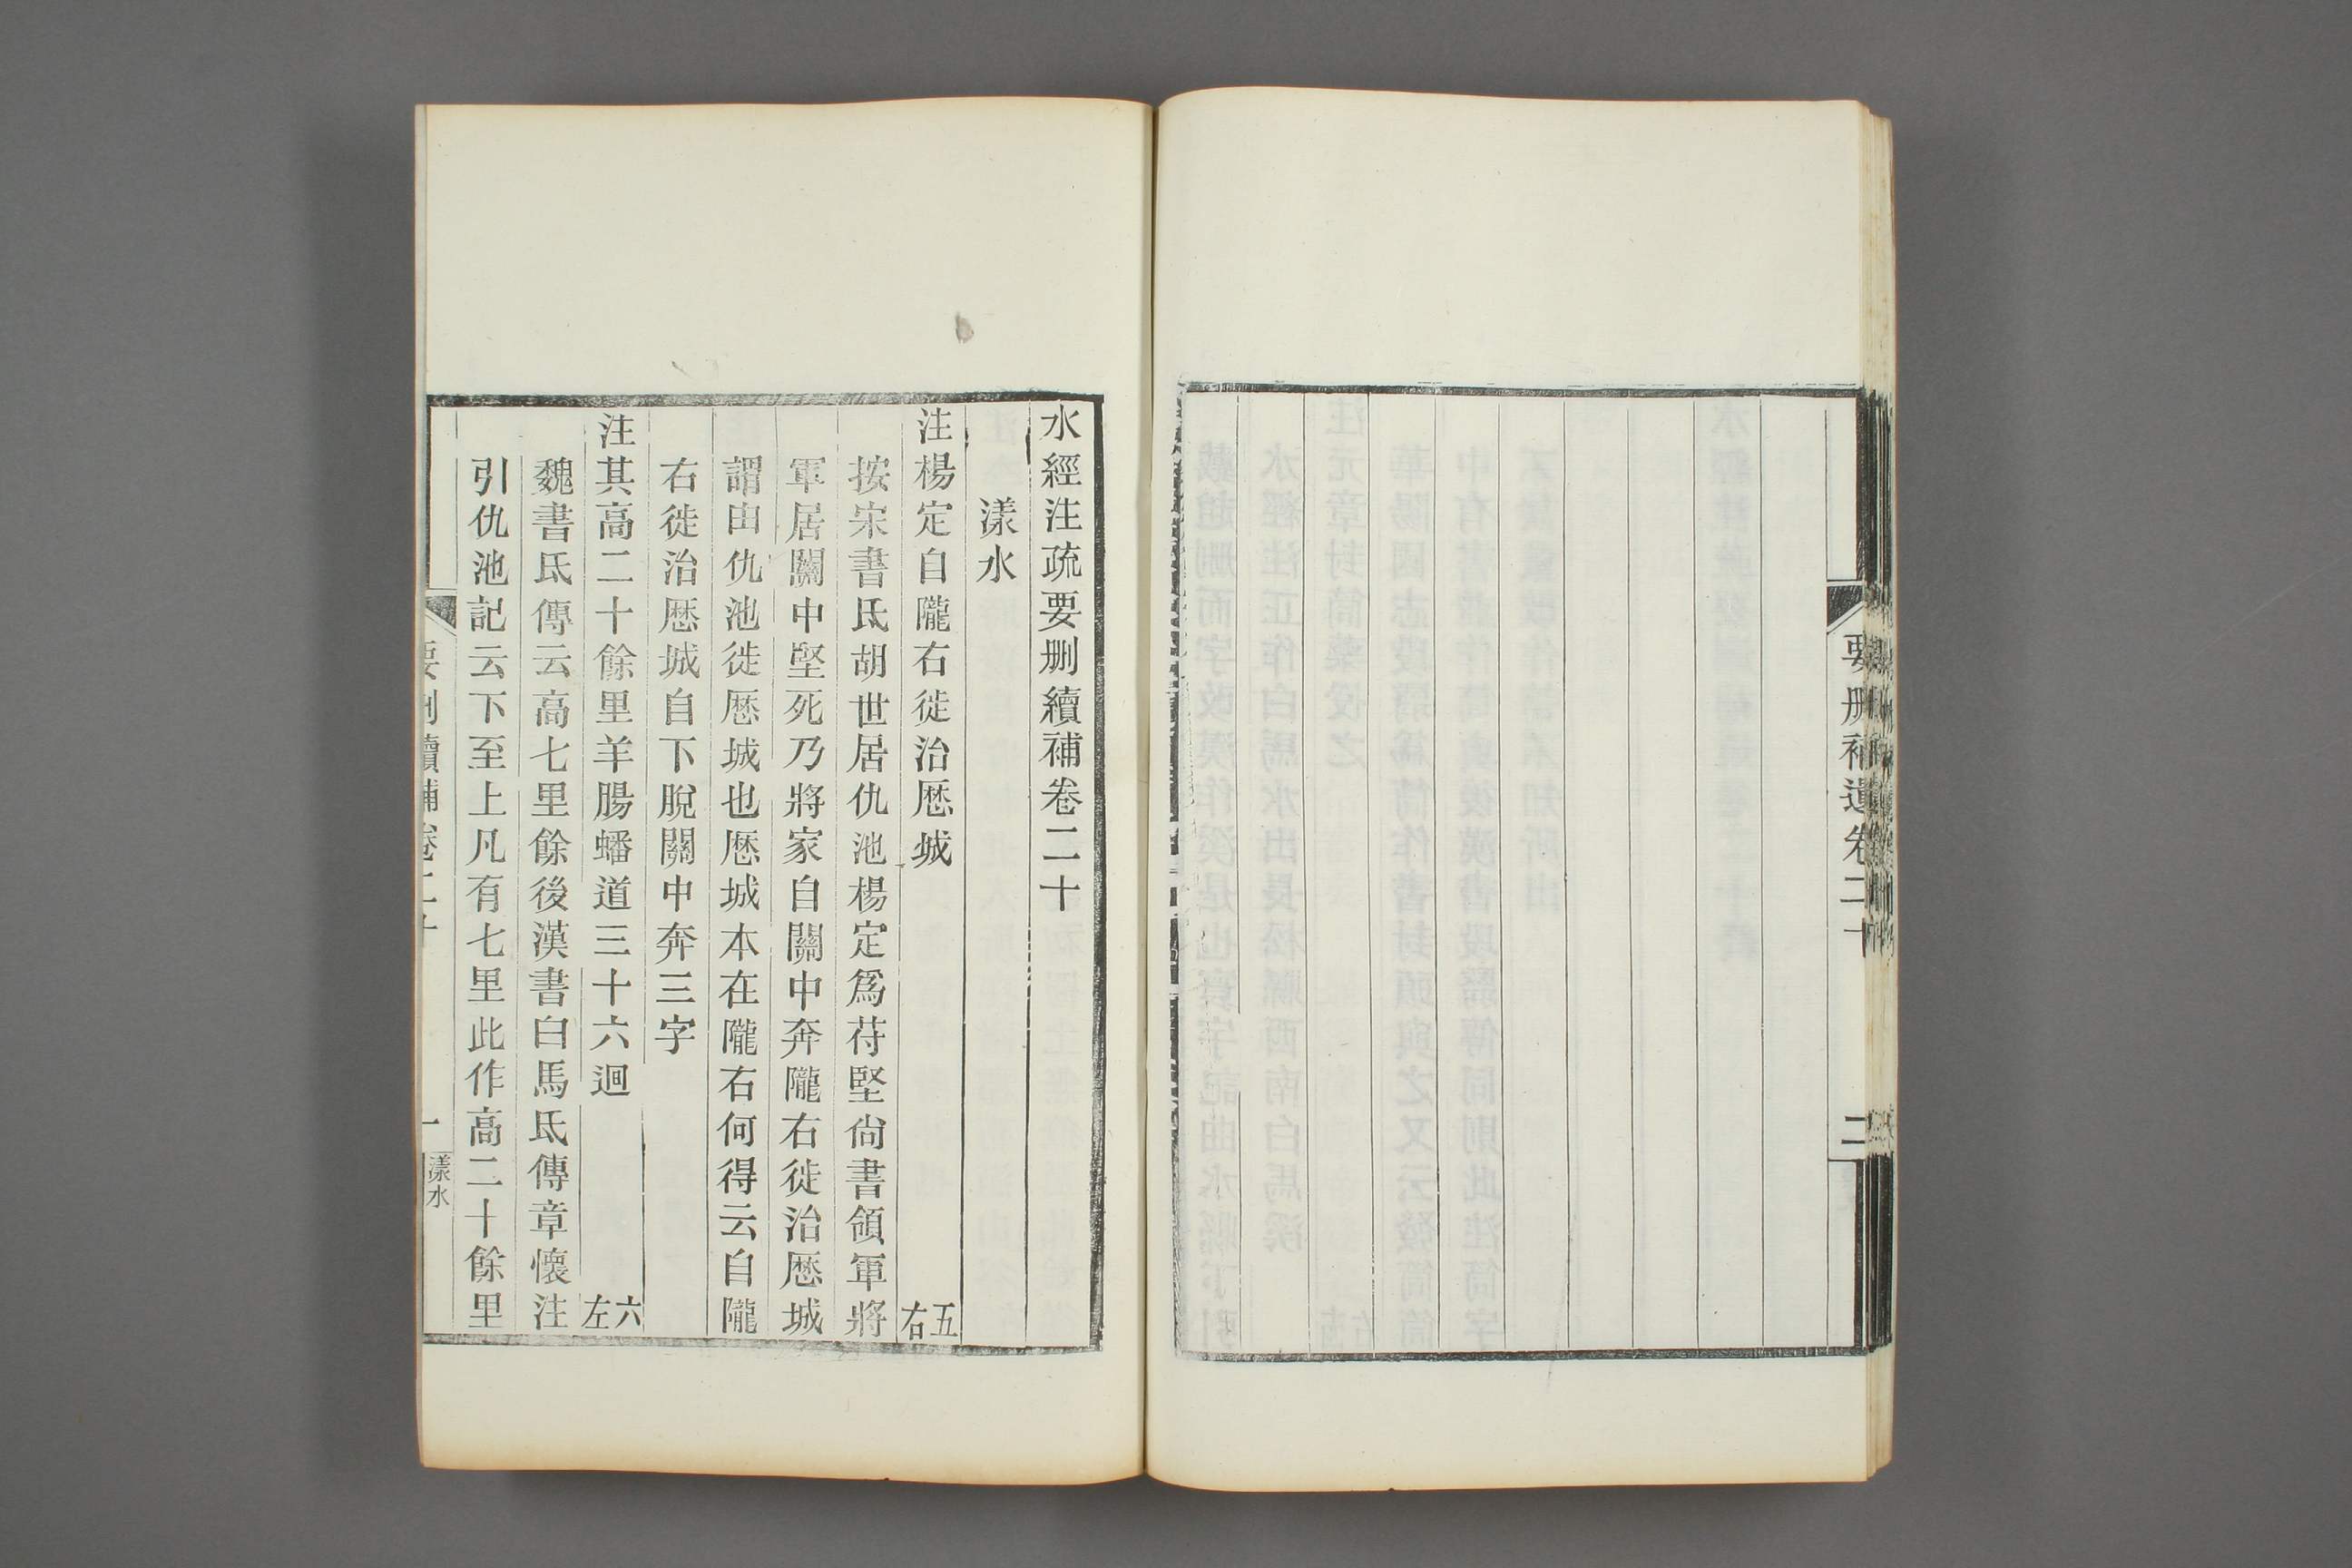 要刪補遺卷二十
二
水經注疏要刪續補卷二十
漾水
注楊定自隴右徙治厯城 五右
按宋書氐胡世居仇池楊定爲苻堅尙書領軍將
軍居關中堅死乃將家自關中奔隴右徙治厯城
謂由仇池徙厯城也厯城本在隴右何得云自隴
右徙治厯城自下脫關中奔三字
注其高二十餘里羊腸蟠道三十六迴 六左
魏書氐傳云高七里餘後漢書白馬氐傳章懷注
引仇池記云下至上凡有七里此作高二十餘里
要刪續補卷二十
一
漾水